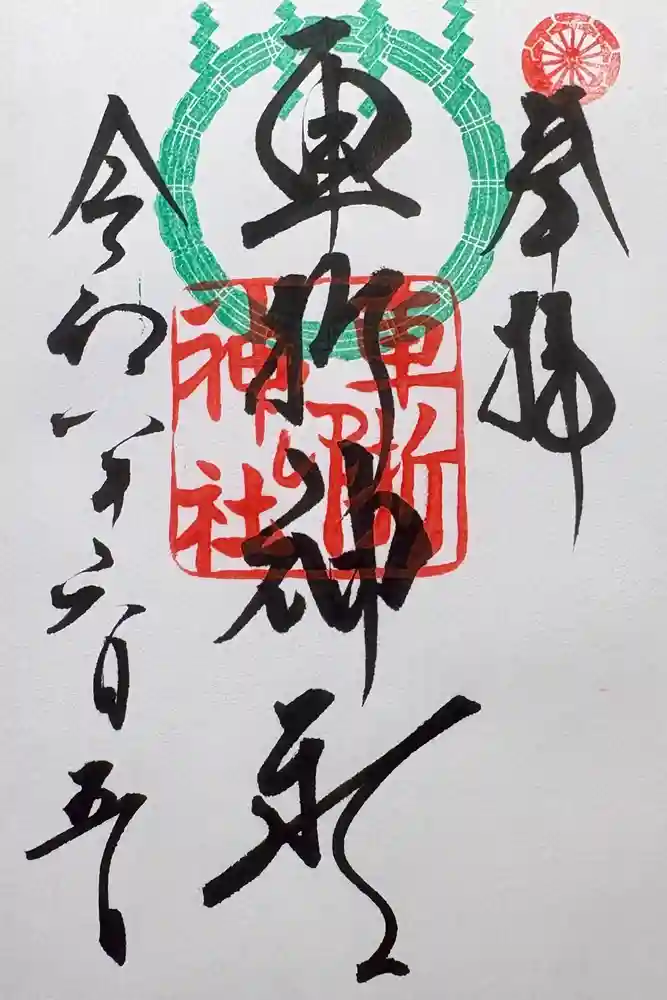 奉拝
車折神社
令和六年六月五日
車折
之印
神社